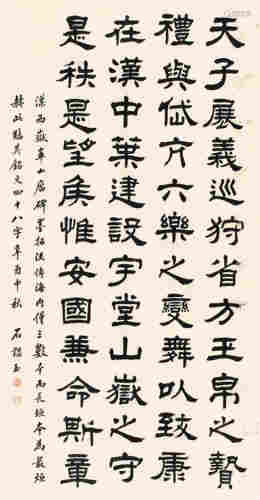 天子展義巡狩省方玉帛之贄
禮與岱亢六樂之變舞以致康
在漢中葉建設宇堂山嶽之守
是秩是望侯惟安國兼命斯章
漢西嶽華山廟碑墨拓流傳海内僅三數本而長垣本為最烜
赫此臨其銘文四十八字辛酉中秋 石